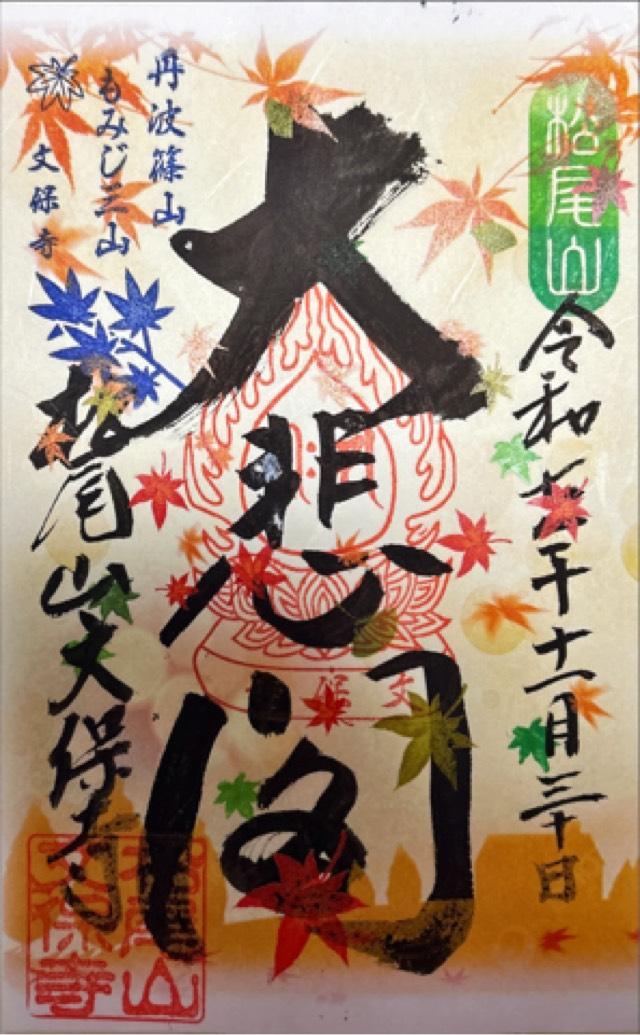 松尾山
令和六年十一月三十日
大悲閣
文保
丹波篠山
もみじ三山
文保寺
松尾山文保寺
松尾山
文保寺